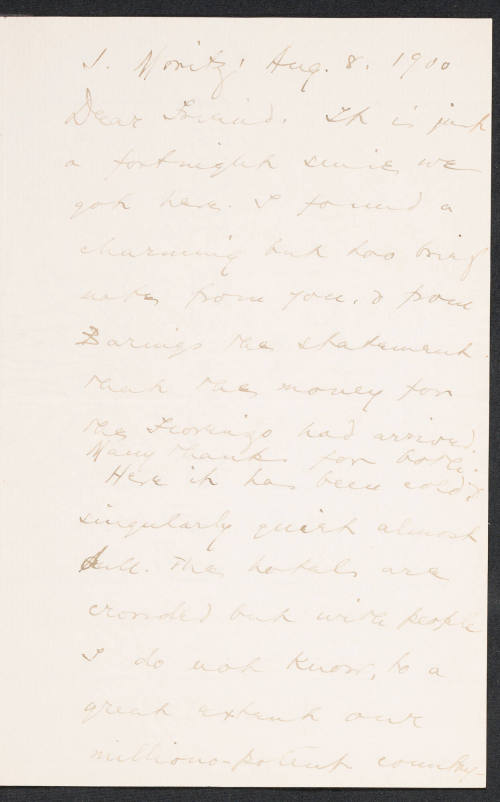 S. Moritz, Aug. 8. 1900
Dear Friend. It is just
a fortnight since we
got here. I found a
charming but too brief
note from you, & from
Barings the statement
that the money for
the Fiorenzo had arrived.
Many thanks for both.
Here it has been cold &
singularly quiet almost
dull. The hotels are
crowded but with people
I do not know, to a
great extent our
milliono-potent country-